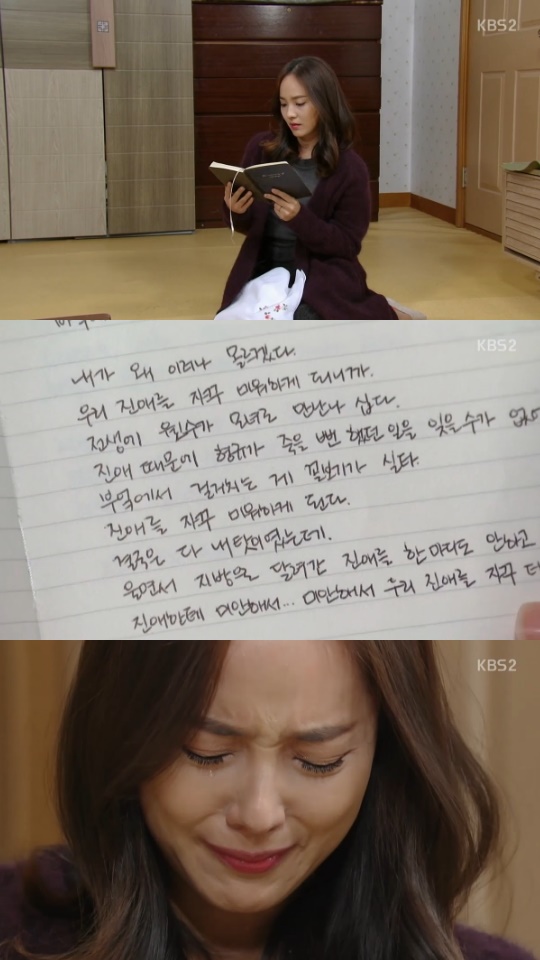 KBS2
KBS2
내가 왜 이러나 모르겠다.
우리 진애를 자꾸 미워하게 되니까.
전생에 웬수가 모녀로 만난나 싶다.
진애 때문에 형규가 죽을 뻔 했던 일을 잊을 수가
부엌에서 걸거치는 게 꼴보기가 싫다.
진애를 자꾸 미워하게 된다.
결국은 다 내 탓이였는데.
울면서 지방을 달려간 진애를 한 마디도 안하고
진애한테 미안해서... 미안해서 우리 진애를 자꾸
KBS2